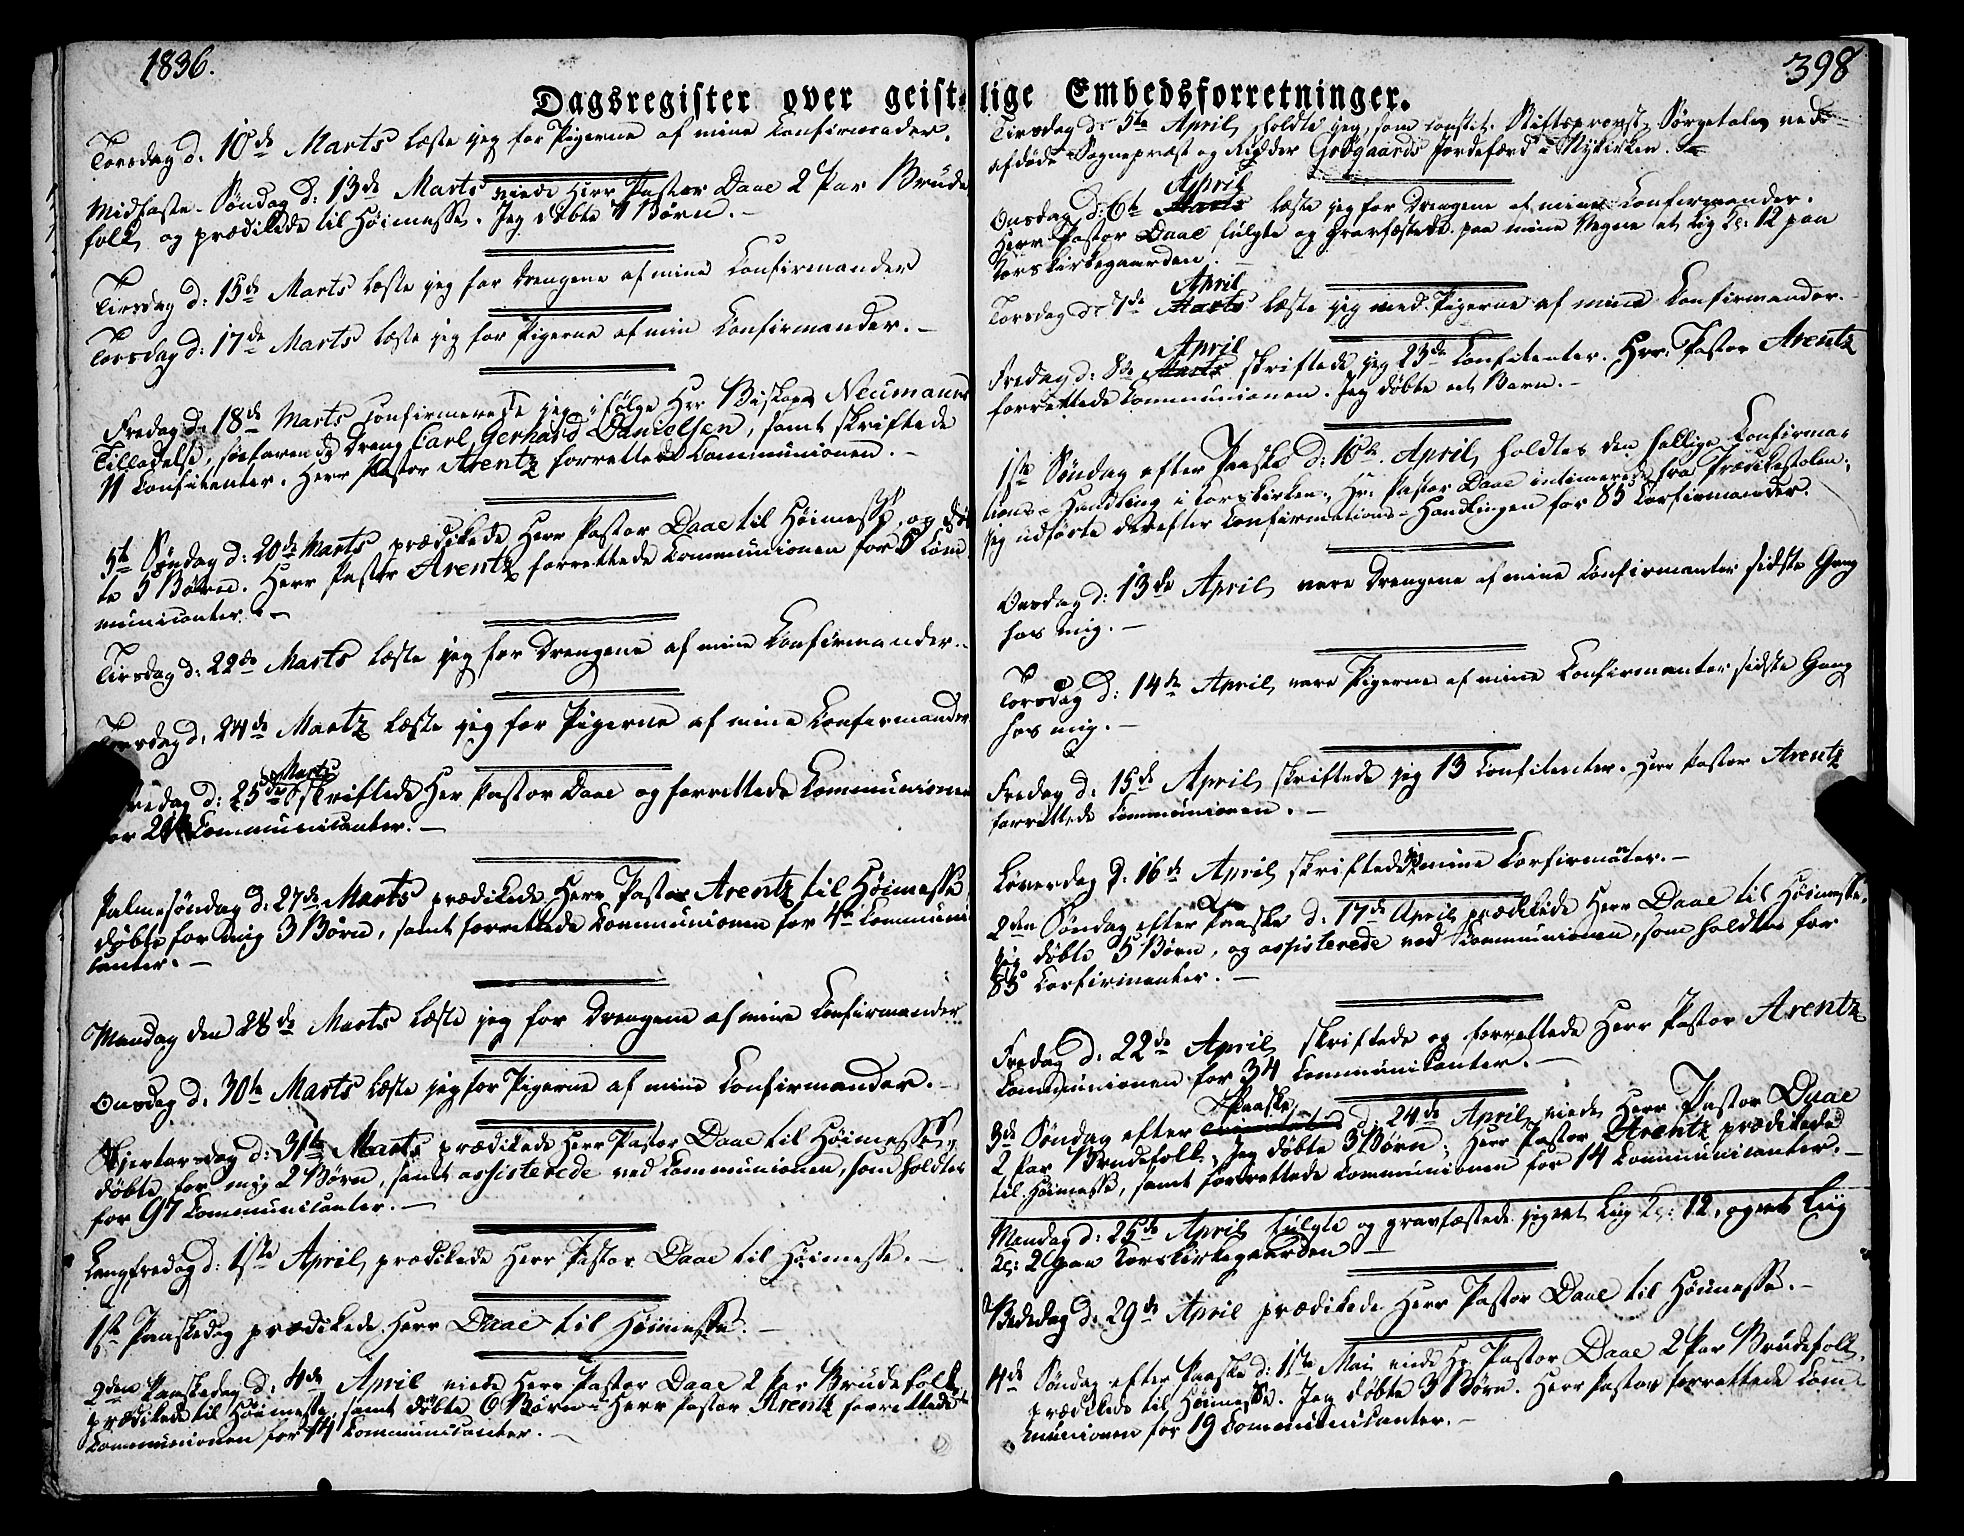 1836.
398
Dagsregister over geistlige Embedsforretninger.
Torsdag d: 10de Marts læste jeg for Pigerne af mine Confirmander.
Midfaste-Søndag d: 13de Marts viede Herr Pastor Daae 2 Par Brude
folk og prædikede til Høimesse. Jeg døbte 7 Børn.—
Tirsdag d: 15de Marts læste jeg for Drengene af mine Confirmander
Torsdag d: 17de Marts læste jeg for Pigerne af mine Confirmander.—
Fredag d. 18de Marts confirmerede jeg ifølge Hrr Biskop Neumanns
Tilladelse, søefarende Dreng Carl Gerhard Danielsen, samt skriftede
11 Confitenter. Herr Pastor Arentz forrettede Communionen.—
5te Søndag d: 20de Marts prædikede Herr Pastor Daae til Høimesse, og døb
te 5 Børn. Herr Pastor Arentz forrettede Communionen for 5 Com
municanter.—
Tirsdag d: 22de Marts læste jeg for Drengene af mine Confirmander.
Torsdag d: 24de Martz læste jeg for Pigerne af mine Confirmander
Fredag d: 25de Marts skriftede Her Pastor Daae og forrettede Communionen
for 21 Communicanter.—
Palmesøndag d: 27de Marts prædikede Herr Pastor Arentz til Høimesse
døbte for mig 3 Børn, samt forrettede Communionen for 4 Communi
canter.—
Mandag den 28de Marts læste jeg for Drengene af mine Confirmander
Onsdag d: 30te Marts læste jeg for Pigerne af mine Confirmander.—
Skjertorsdag d: 31te Marts prædikede Herr Pastor Daae til Høimesse,
døbte for mig 2 Børn, samt assisterede ved Communionen, som holdtes
for 97 Communicanter.—
Langfredag d: 1ste April prædikede Herr Pastor Daae til Høimesse.—
1ste Paaskedag prædikede Herr Daae til Høimesse.—
2den Paaskedag d: 4de April viede Herr Pastor Daae 2 Par Brudefolk
prædikede til Høimesse, samt døbte 6 Børn. Herr Pastor Arentz forrettede
Communionen for 14 Communicanter.—
Tirsdag d: 5te April holdte jeg, som constit. Stiftsprovst, Sørgetalen ved
afdøde Sognepræst og Ridder Grøgaards Jordefærd i Nykirken.
Onsdag d: 6te Marts April læste jeg for Drengene af mine Confirmander.
Herr Pastor Daae fulgte og gravfæstede paa mine Vegne et Lig Kl: 12 paa
Korskirkegaarden.
Torsdag d: 7de Marts April læste jeg med Pigerne af mine Confirmander.
Fredag d: 8de Marts April skriftede jeg 23de Confitenter. Hrr. Pastor Arentz
forrettede Communionen. Jeg døbte et Barn.—
1ste Søndag efter Paaske d: 10de April holdtes den hellige Confirma-
tions-Handling i Korskirken; Hr. Pastor Daae intimerede fra Prædikestolen;
jeg udførte derefter Confirmations-Handlingen for 85 Confirmander.
Onsdag d: 13de April vare Drengene af mine Confirmanter sidste Gang
hos mig.—
Torsdag d: 14de April vare Pigerne af mine Confirmanter sidste Gang
hos mig.—
Fredag d: 15de April skriftede jeg 13 Confitenter. Herr Pastor Arentz
forrettede Communionen.—
Løverdag d: 16de April skriftede jeg mine Confirmanter.—
2den Søndag efter Paaske d: 17de April prædikede Herr Daae til Høimesse.
jeg døbte 5 Børn, og assisterede ved Communionen, som holdtes for
85 Confirmanter.—
Fredag d: 22de April skriftede og forrettede Herr Pastor Arentz
Communionen for 34 Communicanter.—
3de Søndag efter Trinitatis Paaske d: 24de April viede Herr Pastor Daae
2 Par Brudefolk. Jeg døbte 3 Børn; Herr Pastor Arentz prædikede
til Høimesse, samt forrettede Communionen for 14 Communicanter.—
Mandag d: 25de April fulgte og gravfæstede jeg et Liig Kl: 12, og et Liig
Kl: 2 paa Korskirkegaarden.—
Bededag d: 29de April prædikede Herr Pastor Daae til Høimesse.—
4de Søndag efter Paaske d: 1ste Mai viede Hr Pastor Daae 2 Par Brudefolk,
prædikede til Høimesse. Jeg døbte 3 Børn. Herr Pastor forrettede Com-
munionen for 19 Communicanter.—